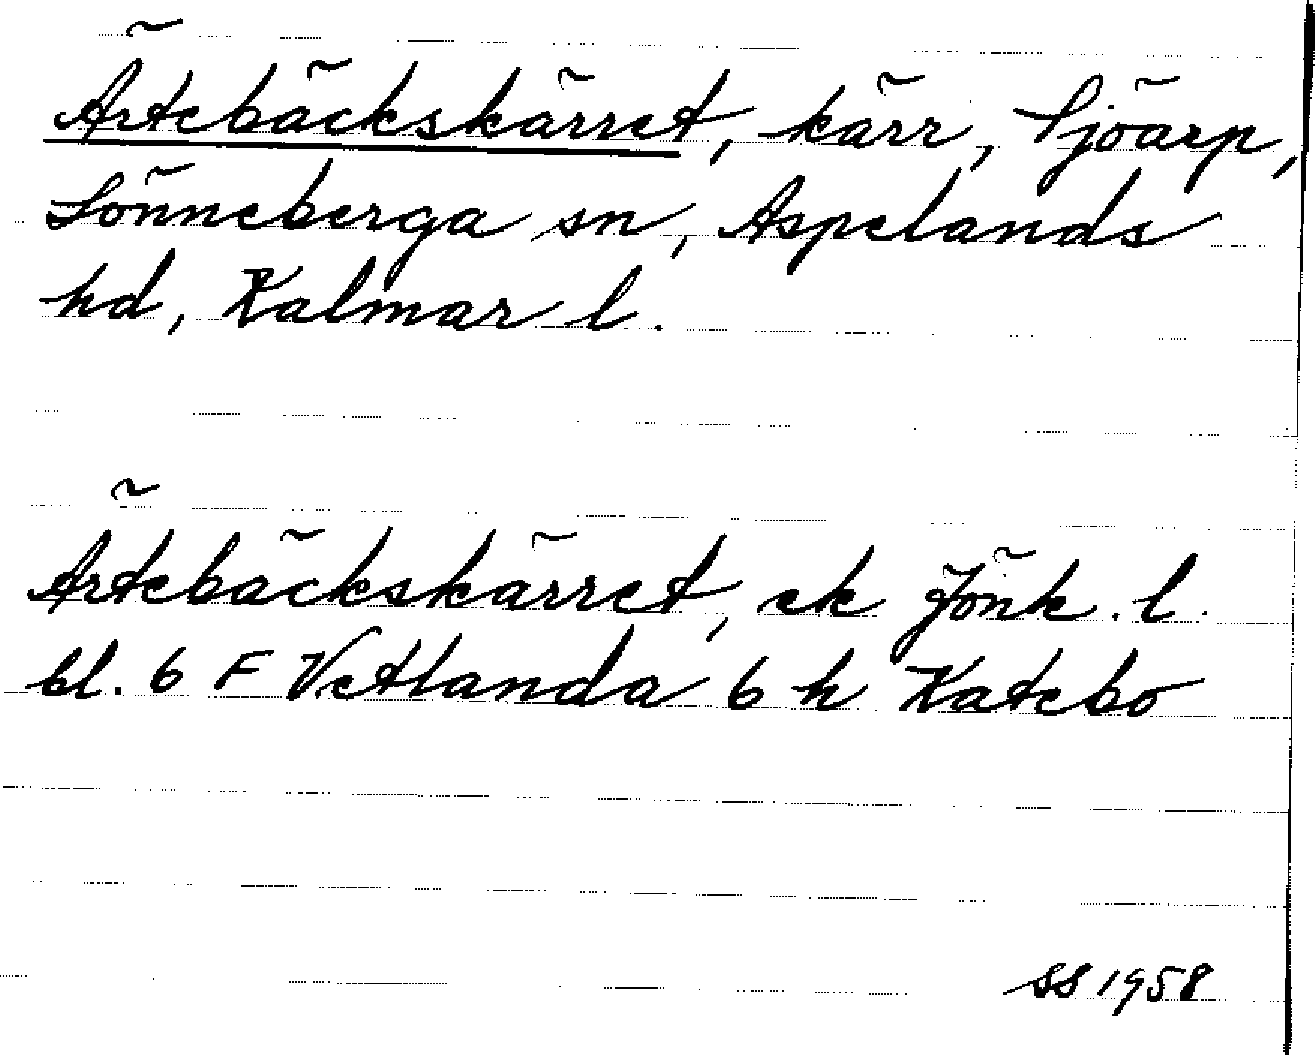 Ärtebäckskärret, kärr, Sjöarp,
Lönneberga sn, Aspelands
hd, Kalmar l.
Ärtebäckskärret, ek Jönk. l.
bl. 6 F Vetlanda 6 h Katebo
SS 1958